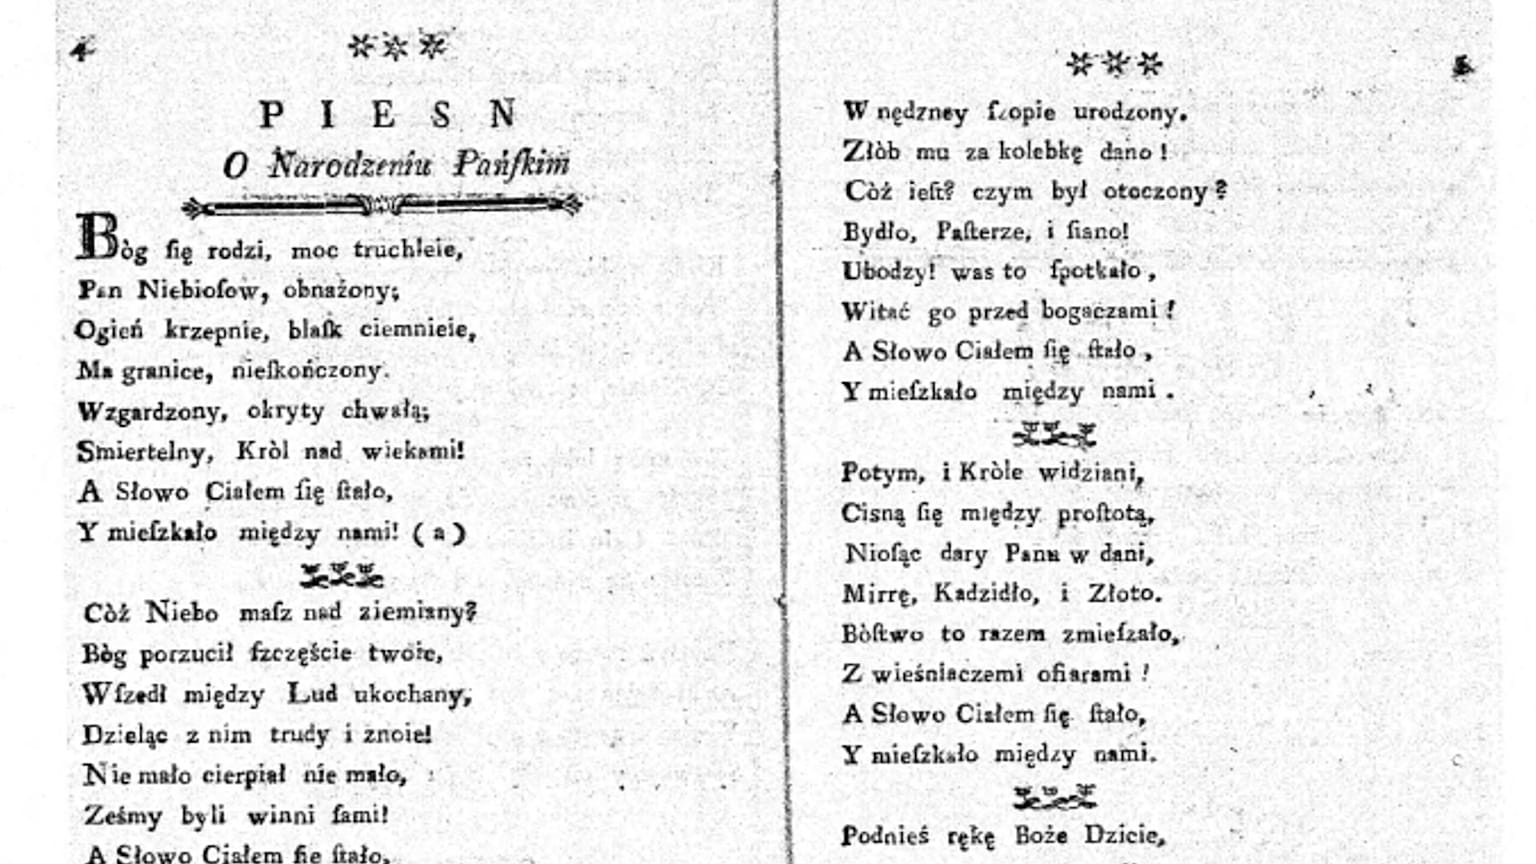 4
***
PIESN
O Narodzeniu Pańſkim
Bòg ſię rodzi, moc truchleie,
Pan Niebioſow, obnażony;
Ogień krzepnie, blaſk ciemnieie,
Ma granice, nieſkończony.
Wzgardzony, okryty chwałą;
Smiertelny, Kròl nad wiekami!
A Słowo Ciałem ſię ſtało,
Y mieſzkało między nami! (a)
Còż Niebo maſz nad ziemiany?
Bòg porzucił ſzczęście twoie,
Wſzedł między Lud ukochany,
Dzieląc z nim trudy i znoie!
Nie mało cierpiał nie mało,
Ześmy byli winni ſami!
A Słowo Ciałem ſię ſtało,
***
5
W nędzney ſzopie urodzony.
Złòb mu za kolebkę dano!
Còż ieſt? czym był otoczony?
Bydło, Paſterze, i ſiano!
Ubodzy! was to ſpotkało,
Witać go przed bogaczami!
A Słowo Ciałem ſię ſtało,
Y mieſzkało między nami.
Potym, i Kròle widziani,
Cisną ſię między proſtotą,
Nioſąc dary Panu w dani,
Mirrę, Kadzidło, i Złoto.
Bòſtwo to razem zmieſzało,
Z wieśniaczemi ofiarami!
A Słowo Ciałem ſię ſtało,
Y mieſzkało między nami.
Podnieś rękę Boże Dzicie,